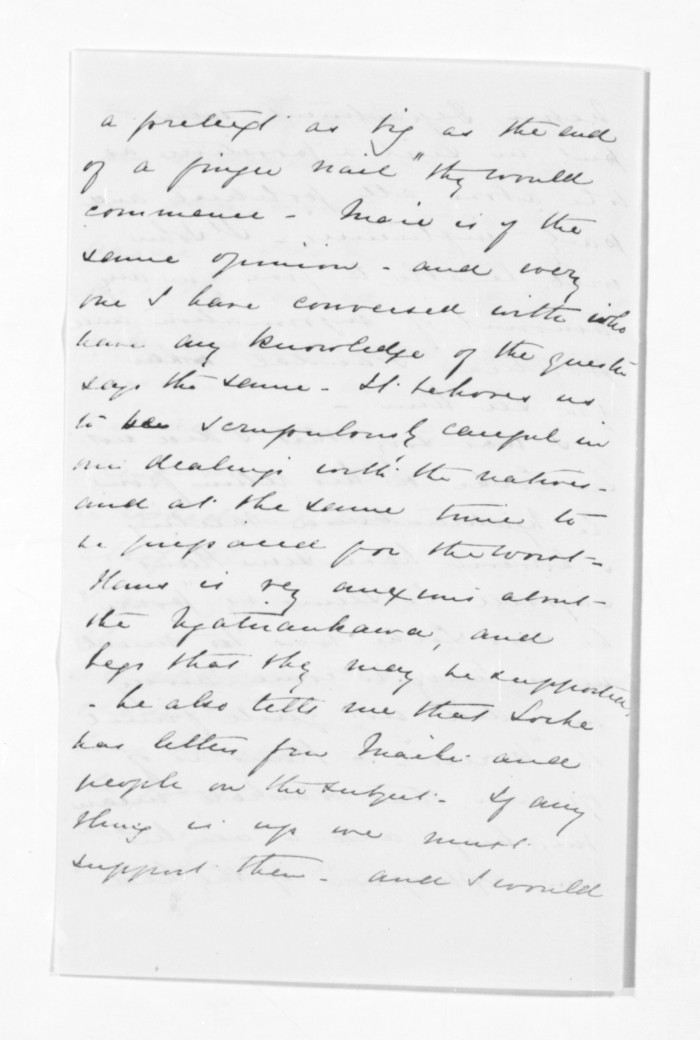 a pretext as big as the end
of a finger nail" they would
commence - Mair is of the
same opinion - and every
one I have conversed with who
have any knowledge of the questn
says the same - It behoves us
to be scrupulously careful in
our dealings with the natives -
and at the same time to
be prepared for the worst -
Hans is very anxious about
the Ngatiraukawa, and
begs that they may be supported,
- he also tells me that Locke
has letters from and
people on the subject - If any
thing is up we must
support them - and I would